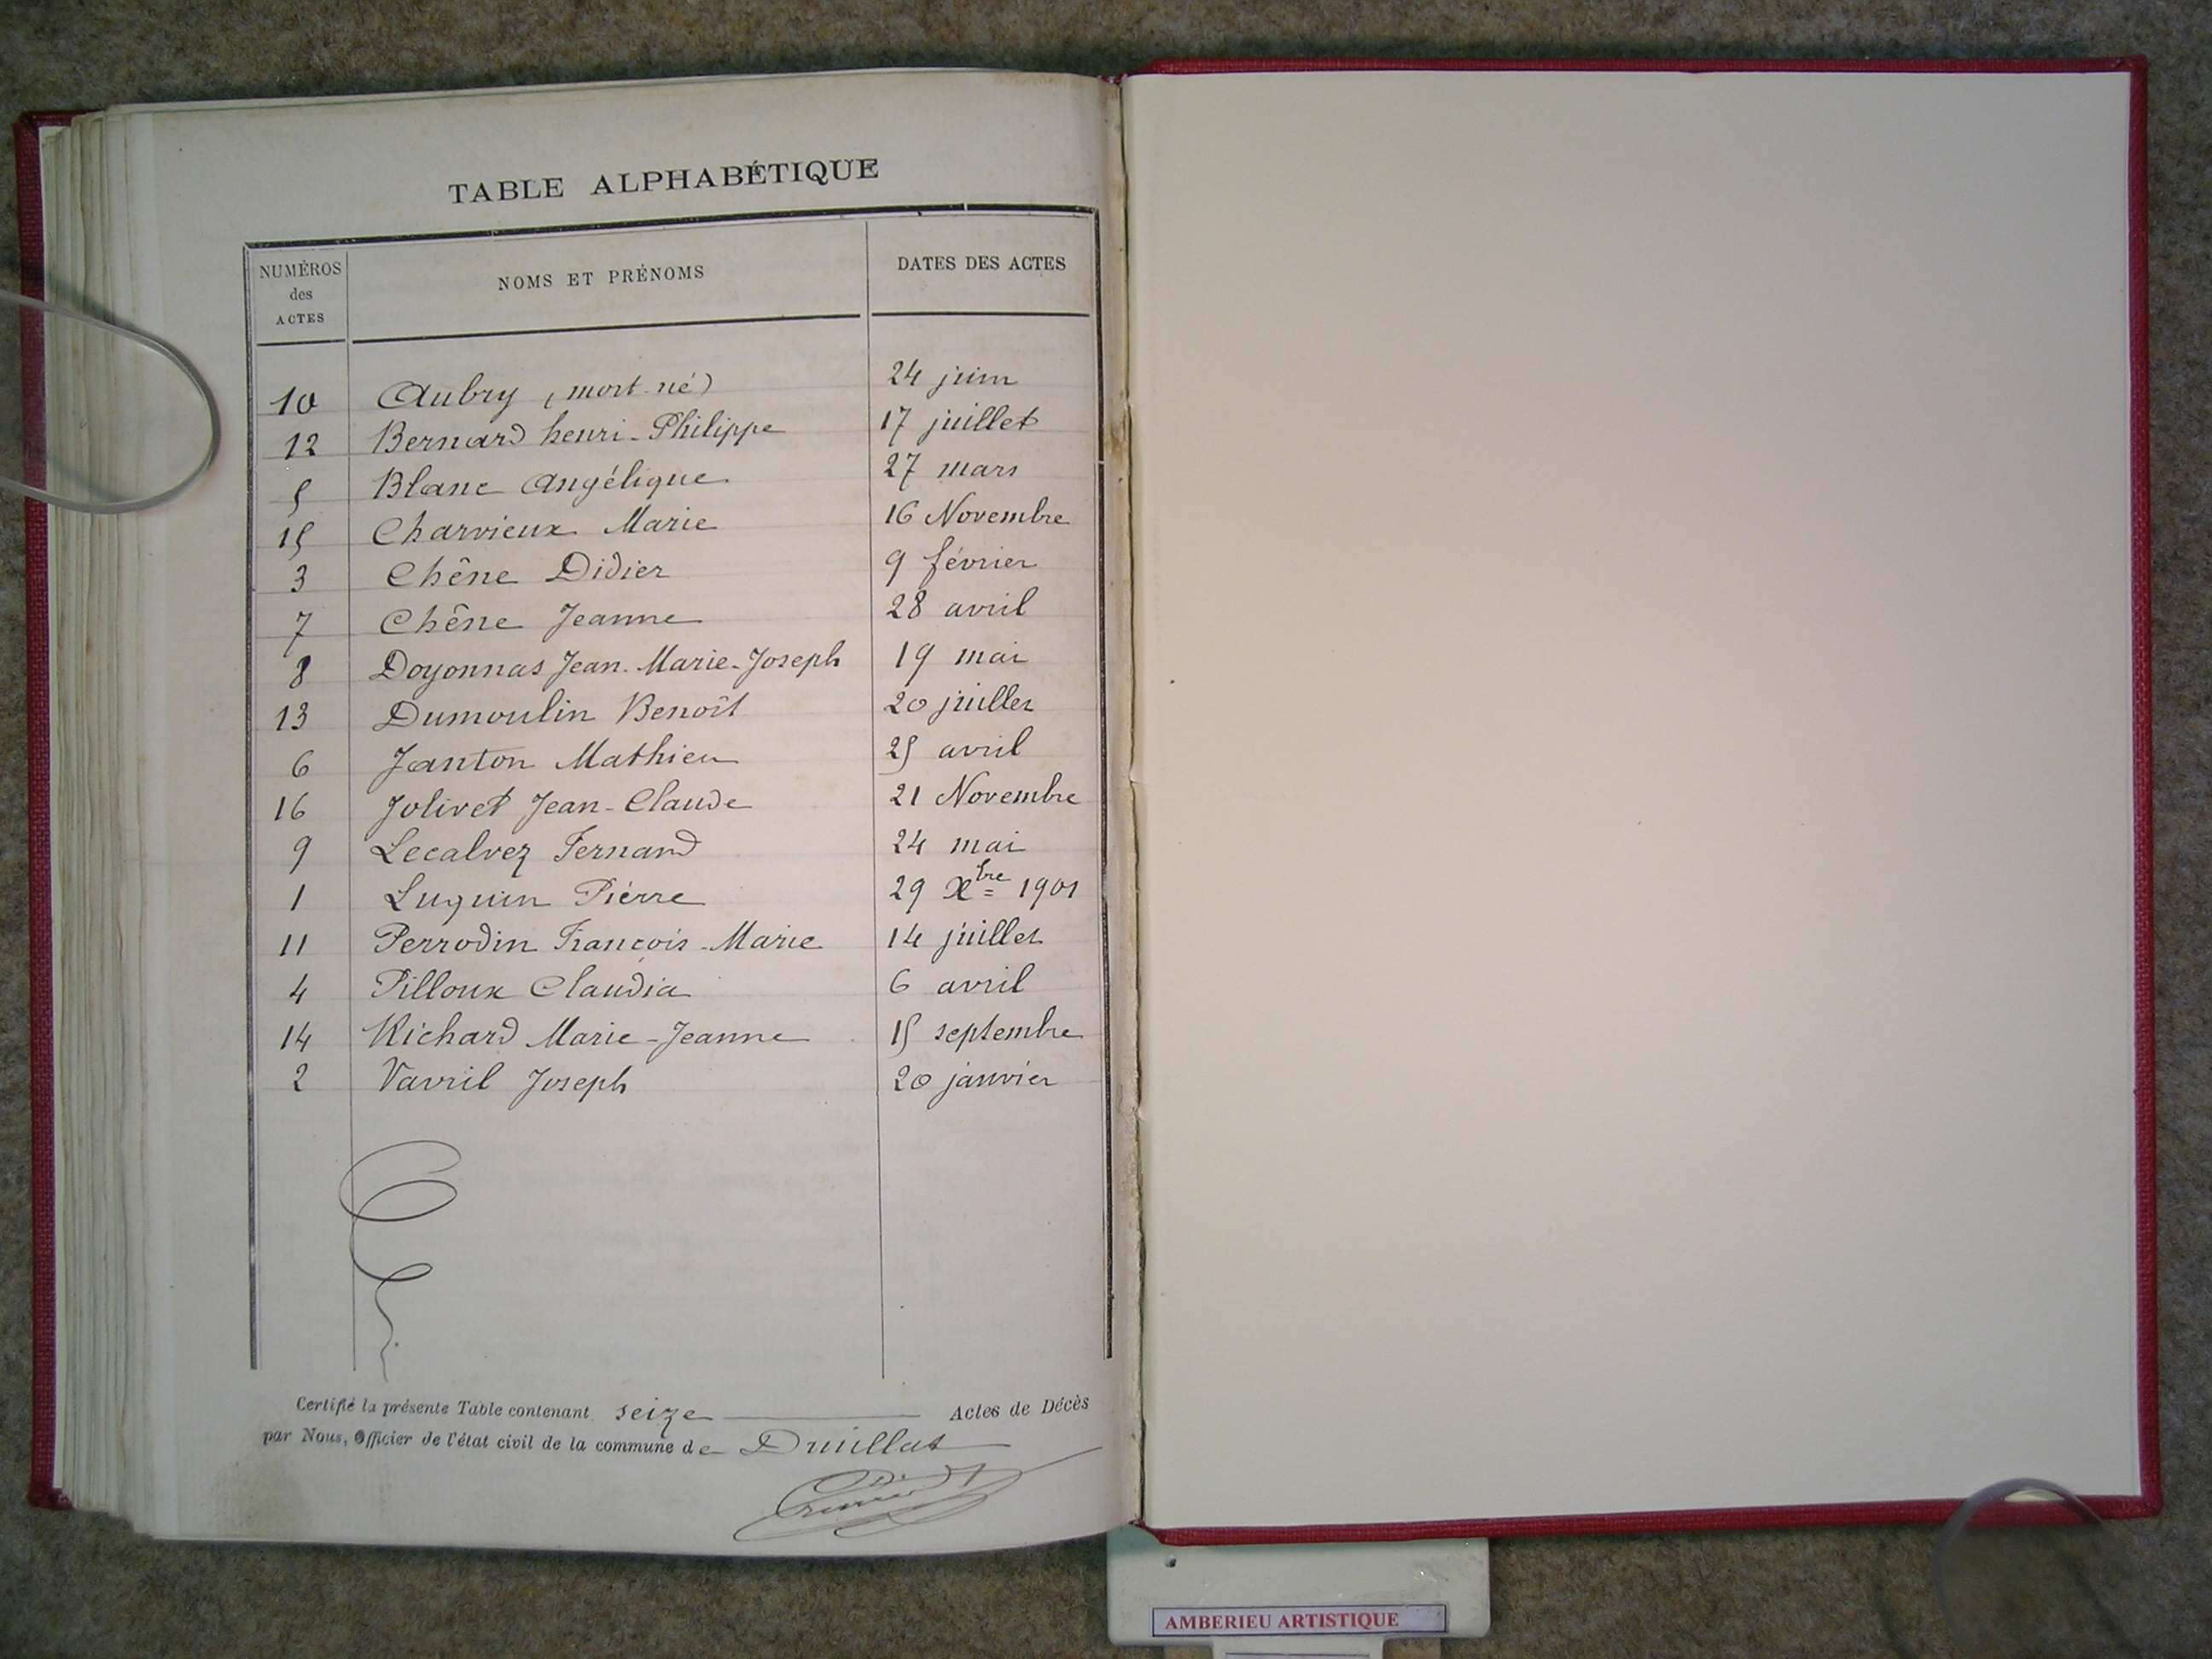 TABLE ALPHABÉTIQUE
NUMÉROS des ACTES NOMS ET PRÉNOMS DATES DES ACTES
10 Aubry (mort-né) 24 juin
12 Bernard henri-Philippe 17 juillet
5 Blanc Angélique 27 mars
15 Charvieux Marie 16 Novembre
3 Chêne Didier 9 février
7 Chêne Jeanne 28 avril
8 Doyonnas Jean-Marie-Joseph 19 mai
13 Dumoulin Benoît 20 juillet
6 Janton Mathieu 25 avril
16 Jolivet Jean-Claude 21 Novembre
9 Lecalvez Fernand 24 mai
1 Luquin Pierre 29 Xbre 1901
11 Perrodin François-Marie 14 juillet
4 Pilloux Claudia 6 avril
14 Richard Marie-Jeanne 15 septembre
2 Vavril Joseph 20 janvier
Certifié la présente Table contenant seize Actes de Décès
par Nous, Officier de l'état civil de la commune de Druillat
AMBERIEU ARTISTIQUE